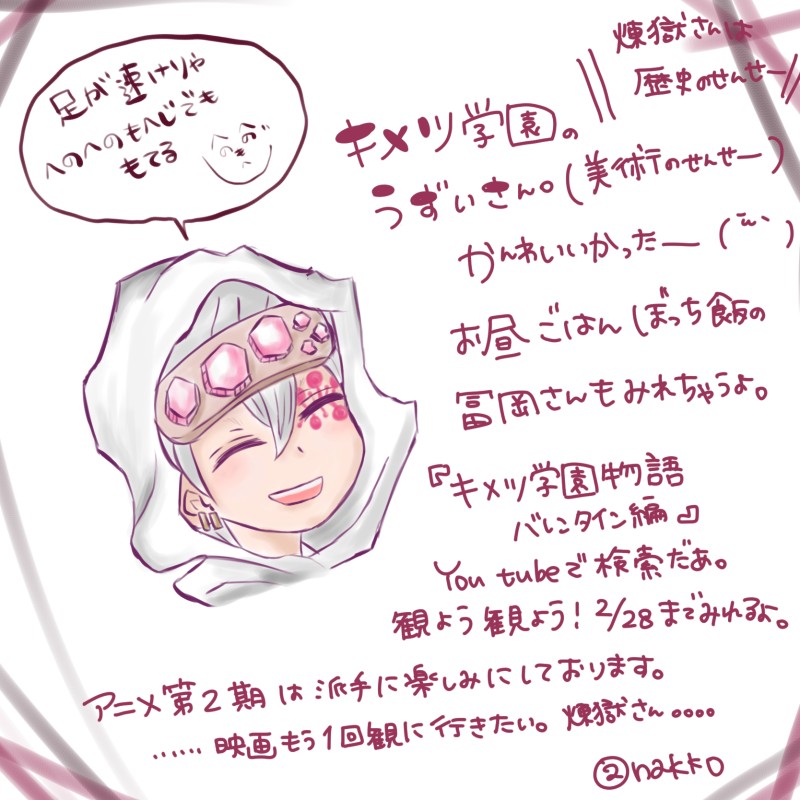 足が速けりゃ
へのへのもへじでも
もてる
へのへのもへじ
煉獄さんは
歴史のせんせー
キメツ学園の
うずいさん。(美術のせんせー)
かんわいいかったー(¨̮ )
お昼ごはんぼっち飯の
冨岡さんもみれちゃうよ。
『キメツ学園物語
バレンタイン編』
You tubeで検索だぁ。
観よう観よう!2/28までみれるよ。
アニメ第2期は派手に楽しみにしております。
……映画もう1回観に行きたい。煉獄さん。。。。
②nakko